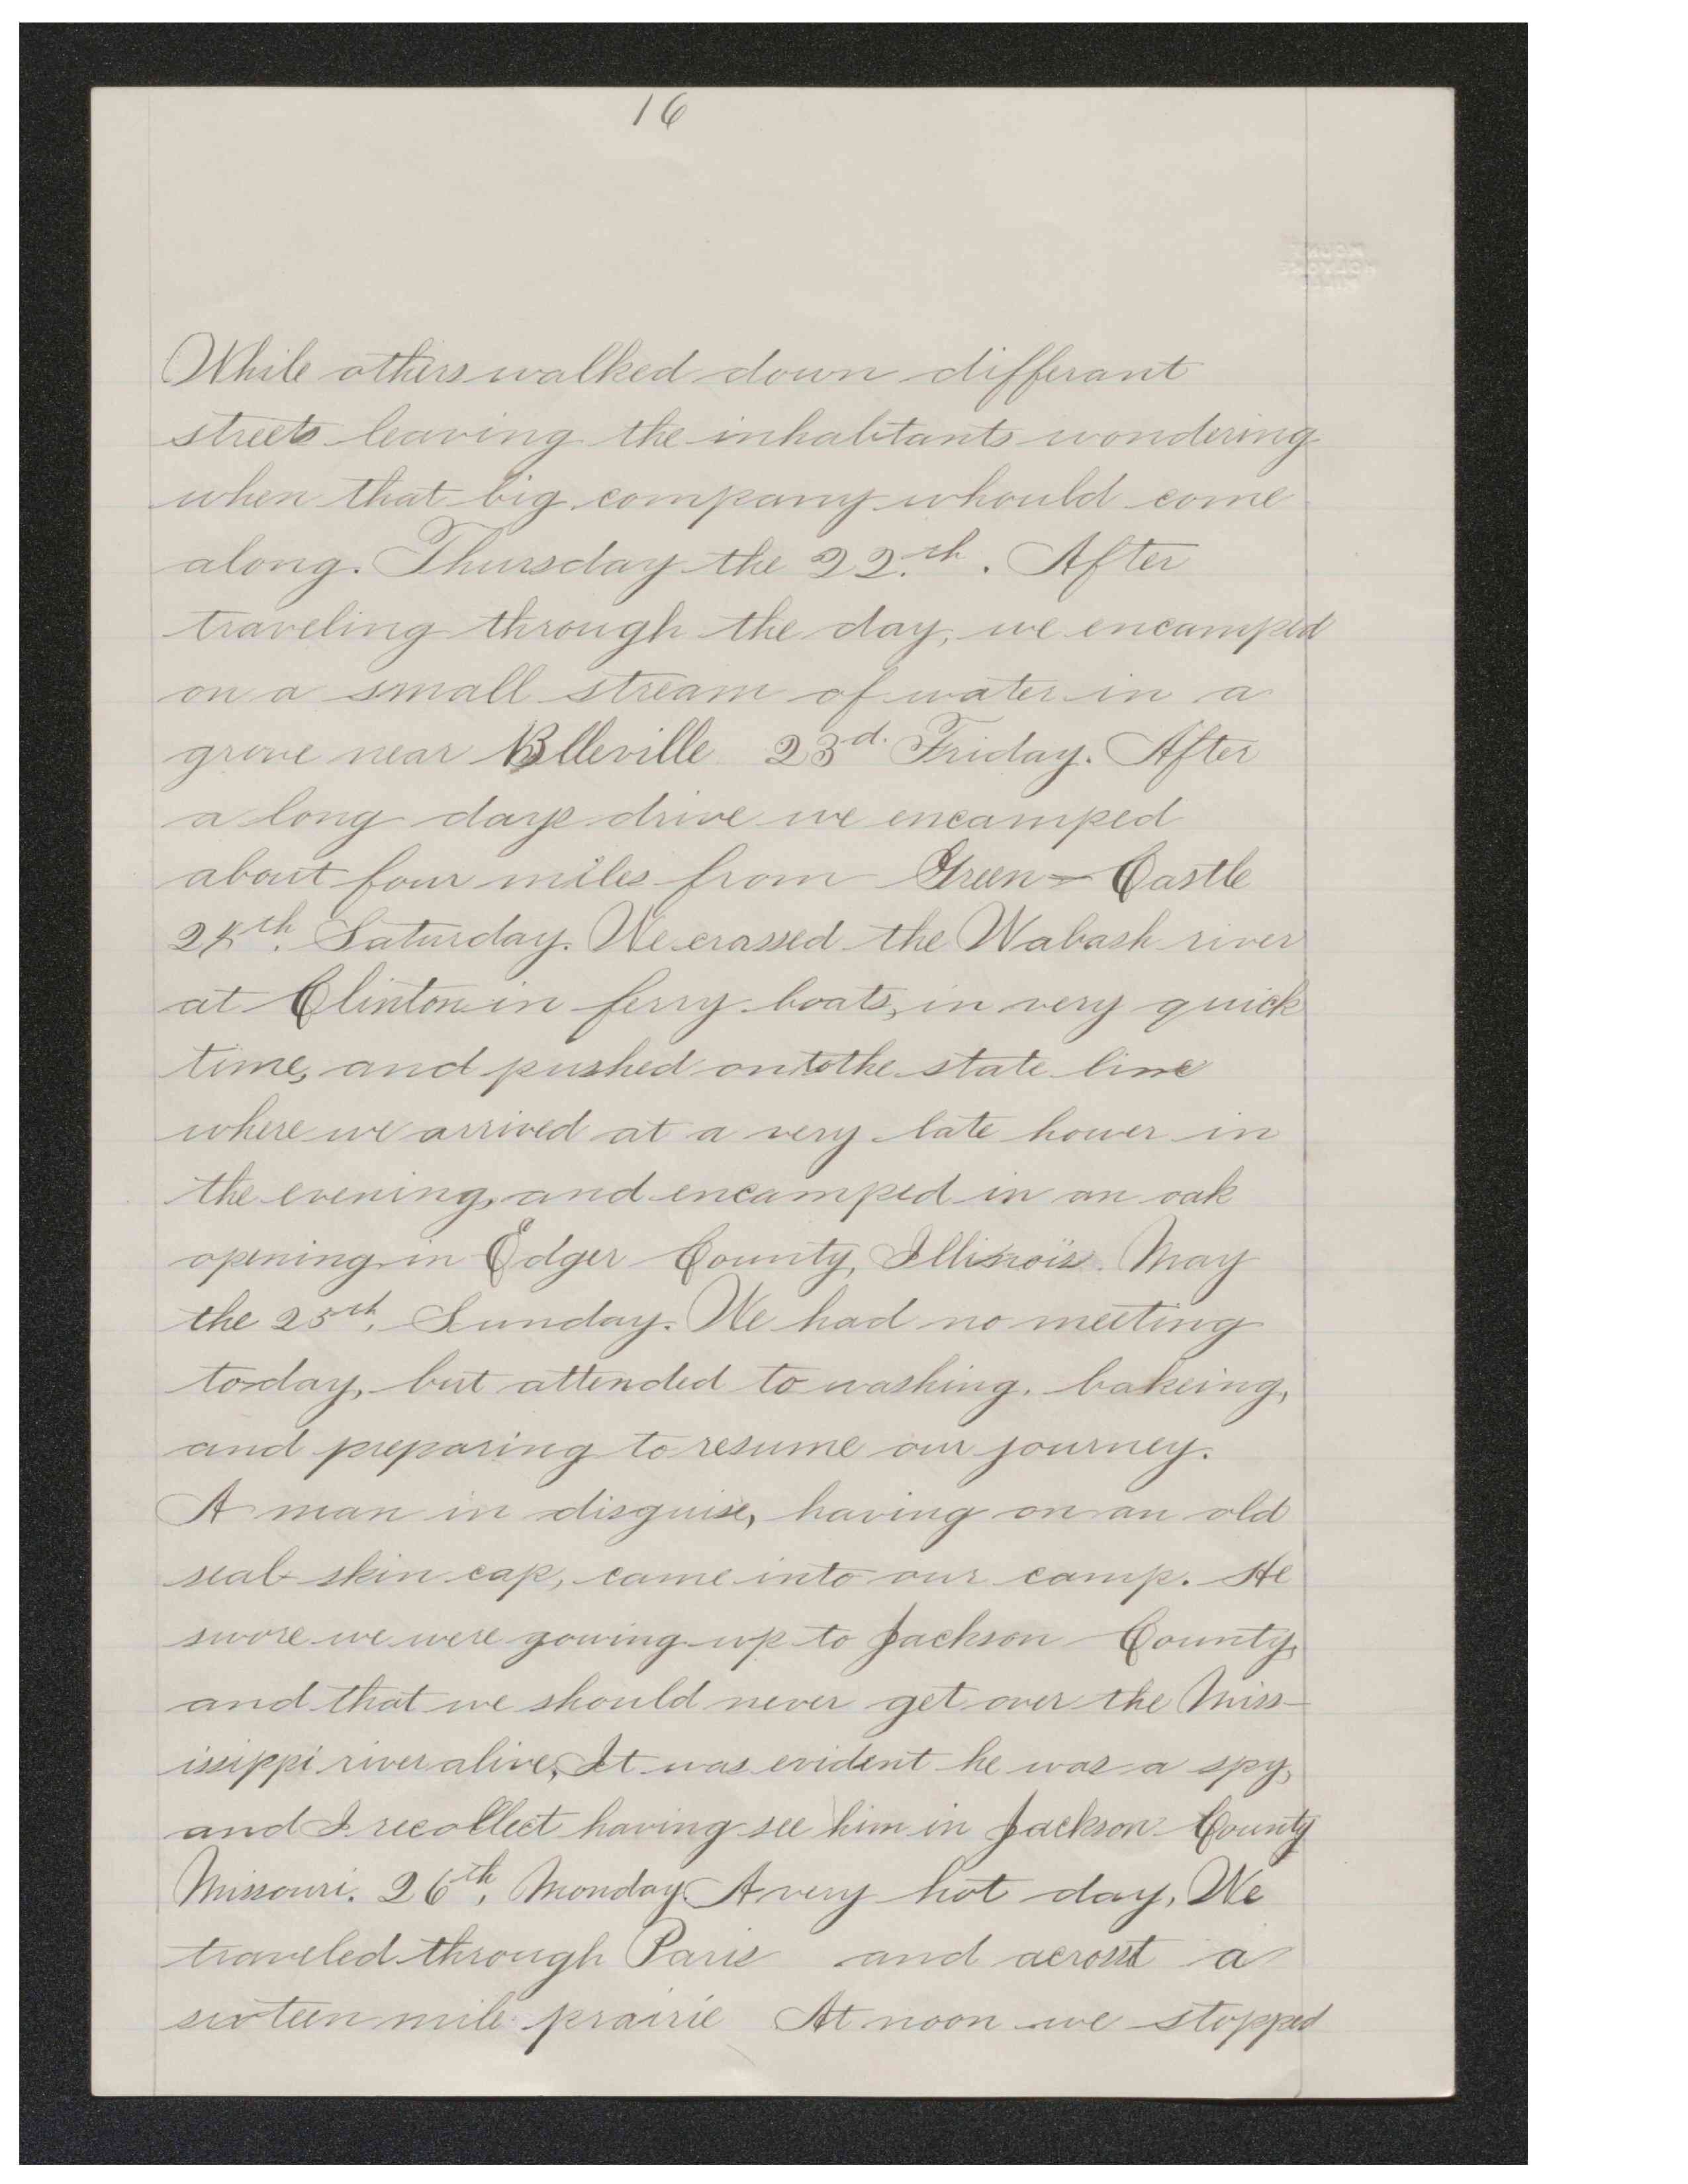 16
While others walked down differant
streets leaving the inhabtants wondering
when that big company whould come
along. Thursday the 22.th. After
traveling through the day, we encamped
on a small stream of water in a
grove near Blleville 23d. Friday. After
a long days drive we encamped
about four miles from Green-Castle
24th. Saturday. We crossed the Wabash river
at Clinton in ferry boats, in very quick
time, and pushed on to the state line
where we arrived at a very late hower in
the evening, and encamped in an oak
opening in Edger County, Illinois. May
the 25th. Sunday. We had no meeting
to-day, but attended to washing, bakeing,
and preparing to resume our journey.
A man in disguise, having on an old
seal skin cap, came into our camp. He
swore we were gowing up to Jackson County,
and that we should never get over the Miss-
issippi river alive, It was evident he was a spy,
and I recollect having see him in Jackson County
Missouri. 26th, Monday A very hot day, We
traveled through Paris and acrosst a
sixteen mile prairie At noon we stopped